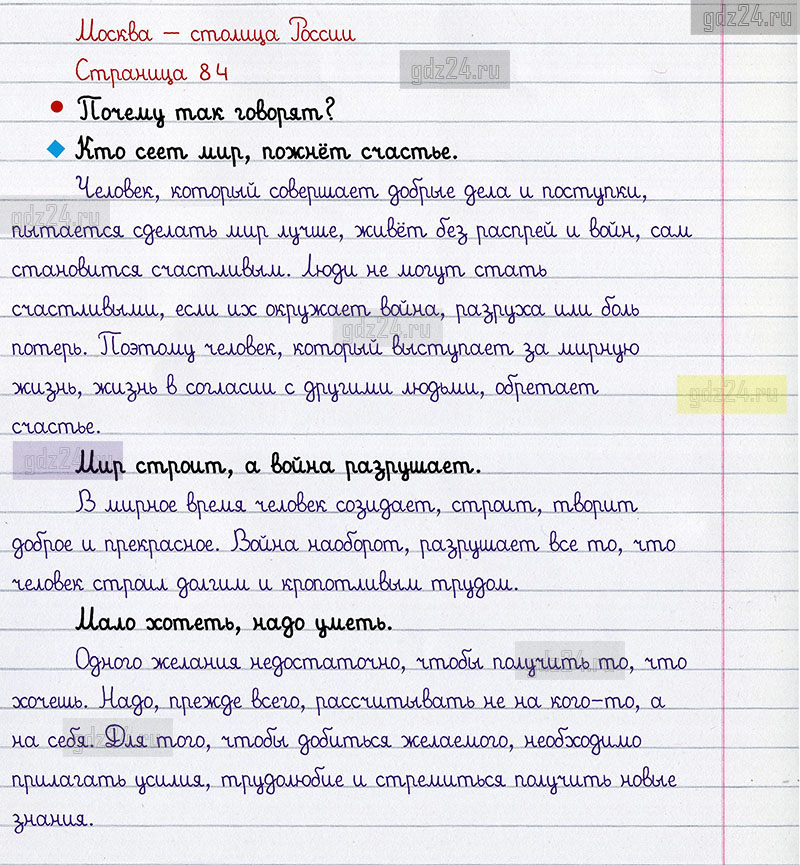 gdz24.ru
Москва – столица России
Страница 84
gdz24.ru
Почему так говорят?
Кто сеет мир, пожнёт счастье.
Человек, который совершает добрые дела и поступки,
gdz24.ru
пытается сделать мир лучше, живёт без распрей и войн, сам
становится счастливым. Люди не могут стать
счастливыми, если их окружает война, разруха или боль
gdz24.ru
потерь. Поэтому человек, который выступает за мирную
жизнь, жизнь в согласии с другими людьми, обретает
gdz24.ru
счастье.
gdz24.ru
Мир строит, а война разрушает.
В мирное время человек созидает, строит, творит
доброе и прекрасное. Война наоборот, разрушает все то, что
человек строил долгим и кропотливым трудом.
Мало хотеть, надо уметь.
Одного желания недостаточно, чтобы получить то, что
gdz24.ru
хочешь. Надо, прежде всего, рассчитывать не на кого-то, а
на себя. Для того, чтобы добиться желаемого, необходимо
gdz24.ru
прилагать усилия, трудолюбие и стремиться получить новые
знания.